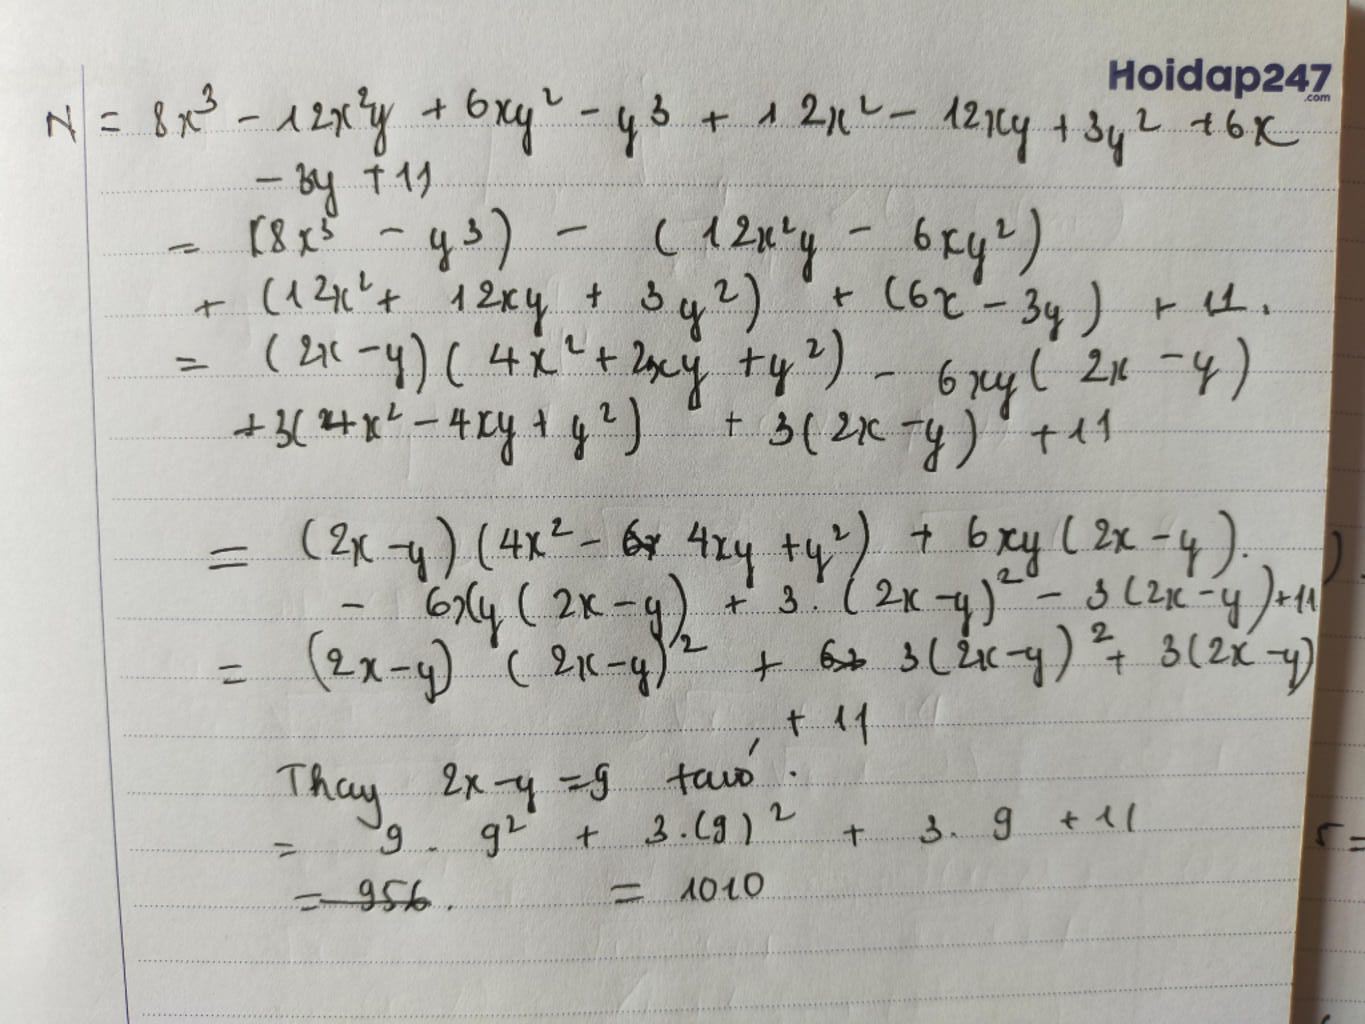 Hoidap247
.com
N = 8x³ - 12x²y + 6xy² - y³ + 12x² - 12xy + 3y² + 6x
- 3y + 11
= (8x³ - y³) - (12x²y - 6xy²)
+ (12x² + 12xy + 3y²) + (6x - 3y) + 11.
= (2x - y)(4x² + 2xy + y²) - 6xy(2x - y)
+3(4x² - 4xy + y²) + 3(2x - y) + 11
= (2x - y)(4x² - 4xy + y²) + 6xy(2x - y).
- 6xy(2x - y) + 3.(2x - y)² - 3(2x - y) + 11
= (2x - y)(2x - y)² + 3(2x - y)² + 3(2x - y)
+ 11
Thay 2x - y = 9 ta có.
= 9 . 9² + 3.(9)² + 3. 9 + 11
= 956. = 1010